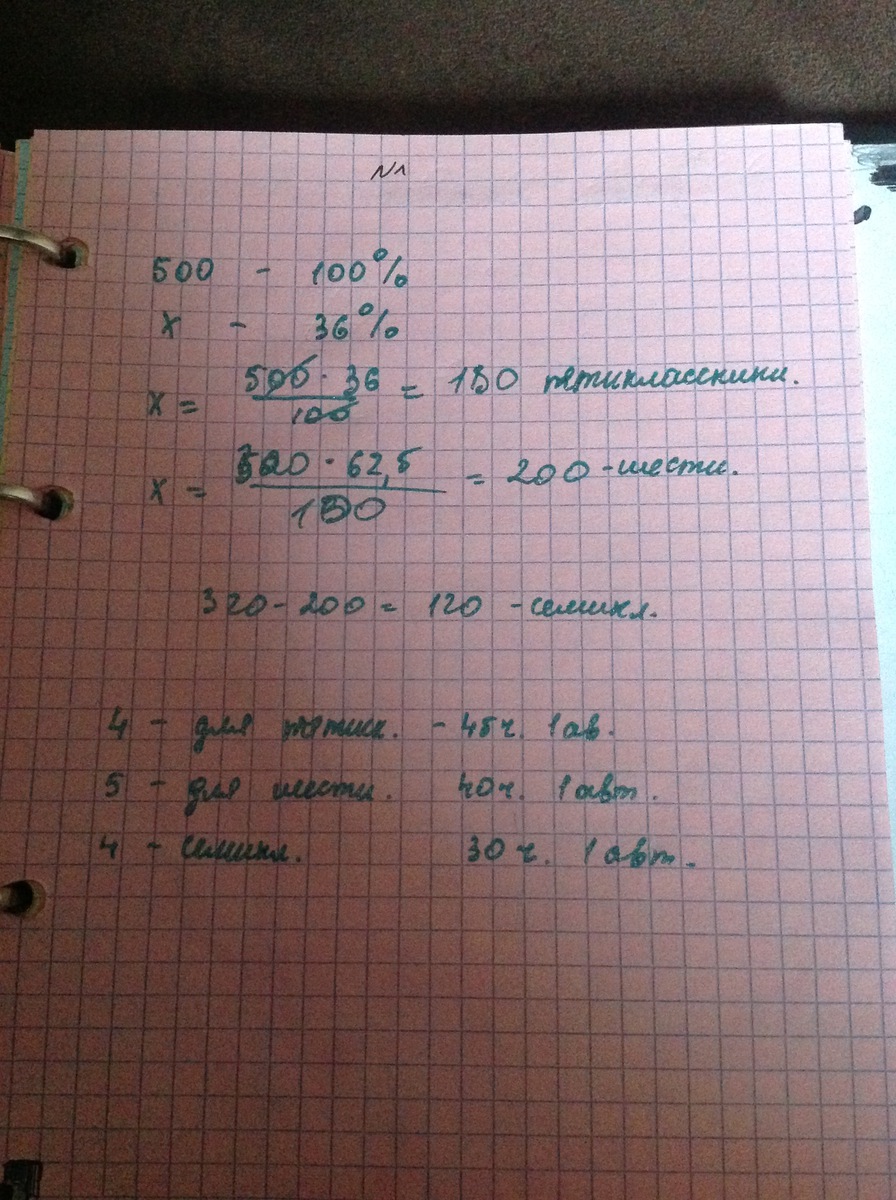 №1
500 - 100%
x - 36%
x = 500 · 36 / 100 = 180 пятиклассники.
x = 320 · 62,5 / 100 = 200 - шести.
320 - 200 = 120 - семикл.
4 - для пятикл. - 45 ч. 1 ав.
5 - для шести. 40 ч. 1 авт.
4 - семикл. 30 ч. 1 авт.